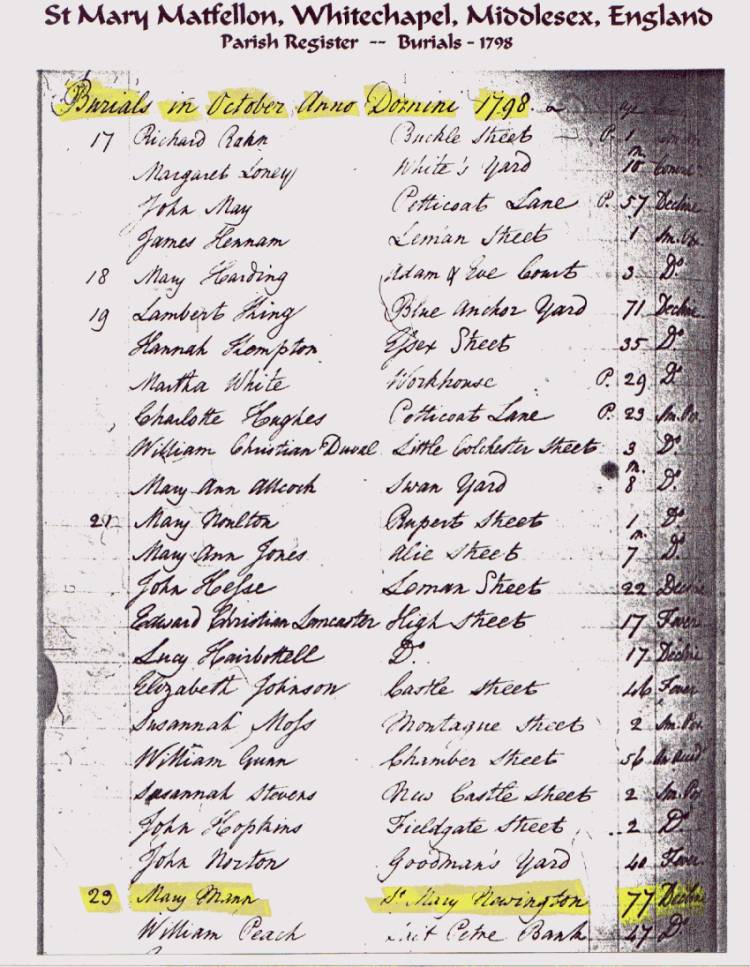 St Mary Matfellon, Whitechapel, Middlesex, England
Parish Register -- Burials - 1798
Burials in October Anno Domini 1798
17 Richard Rahn Buckle Street P. 1
Margaret Loney White's Yard m. 10
John May Petticoat Lane P. 57 Decline
James Hennam Leman Street 1 Sm. Pox
18 Mary Harding Adam & Eve Court 3 Do
19 Lambert King Blue Anchor Yard 71 Decline
Hannah Kempton Essex Street 35 Do
Martha White Workhouse P. 29 Do
Charlotte Hughes Petticoat Lane P. 23 Sm. Pox
William Christian Duval Little Colchester Street 3 Do
Mary Ann Allcock Swan Yard m. 8 Do
21 Mary Noulton Rupert Street 1 Do
Mary Ann Jones Alie Street m. 7 Do
John Hesse Leman Street 22 Decline
Edward Christian Lancaster High Street 17 Fever
Lucy Hairbottell Do 17 Decline
Elizabeth Johnson Castle Street 46 Fever
Susannah Moss Montague Street 2 Sm. Pox
William Gunn Chamber Street 56
Susannah Stevens New Castle Street 2 Sm. Pox
John Hopkins Fieldgate Street 2 Do
John Norton Goodman's Yard 40 Fever
23 Mary Mann St Mary Newington 77 Decline
William Peach Petre Bank 47 Do